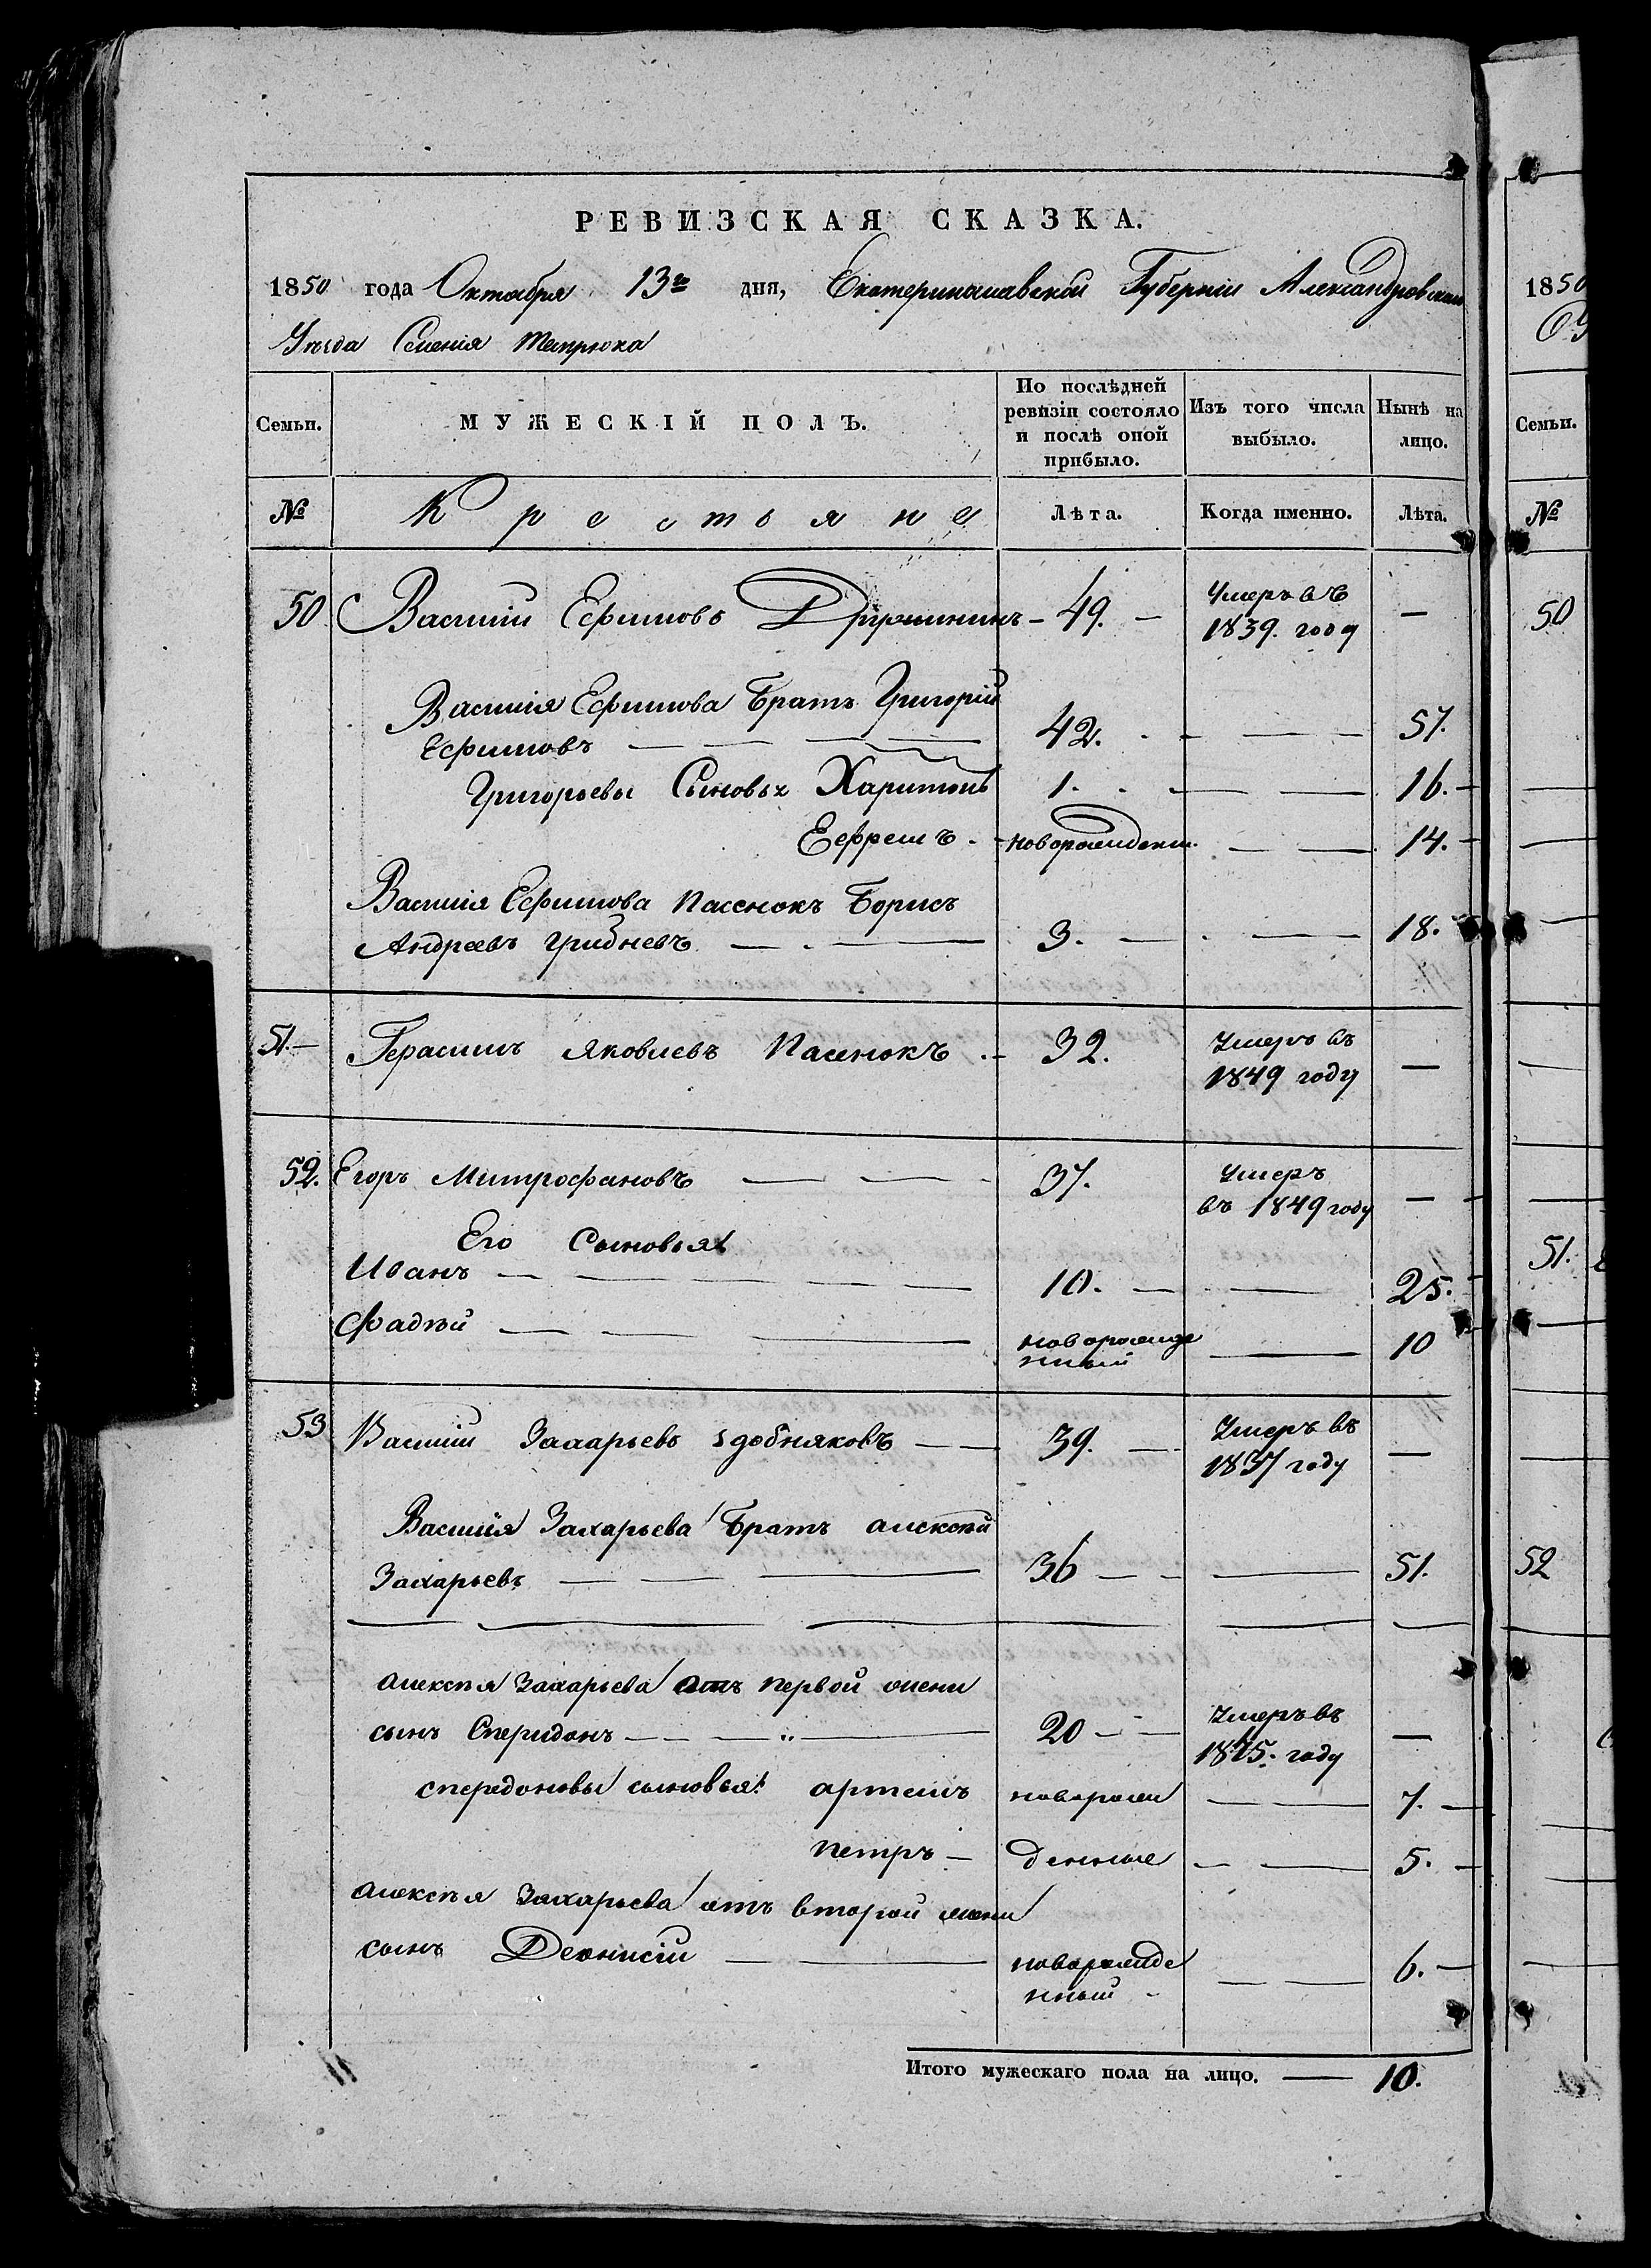 РЕВИЗСКАЯ СКАЗКА.
1850 года Октября 13го дня, Екатеринославской Губерніи Александровскаго
Уѣзда Селенія Темрюка
Семьи.
МУЖЕСКІЙ ПОЛЪ.
По послѣдней ревизіи состояло и послѣ оной прибыло.
Изъ того числа выбыло.
Нынѣ на лицо.
№ Крестьяне Лѣта. Когда именно. Лѣта.
50. Василій Ефимовъ - 49. - Умеръ въ 1839. году —
Василія Ефимова Братъ Григорій
Ефимовъ — 42. — 57.
Григорьевы Сыновья Харитонъ 1. — 16.
Еефремъ - новорожденн. — 14.
Василія Ефимова Пасенокъ Борисъ
Андреевъ Грибневъ — 3. — 18.
51. Герасимъ Яковлевъ Пасенокъ - 32. Умеръ въ 1849 году —
52. Егоръ Митрофановъ — 37. Умеръ въ 1849 году —
Его Сыновья
Иванъ — 10. — 25.
Фадѣй — новорожде нный — 10
53 Василій Захарьевъ Здобняковъ — 39. — Умеръ въ 1837 году —
Василія Захарьева Братъ Алексѣй
Захарьевъ — 36 — 51.
Алексѣя Захарьева отъ первой жены
сынъ Спиридонъ — 20 — Умеръ въ году —
спередоновы сыновья: артемъ новорож — 7.
петръ — денные — 5.
Алексѣя Захарьева отъ второй жены
сынъ Деонисій — новорожде нный — 6.
Итого мужескаго пола на лицо. — 10.
1850
Семьи.
№
50
51.
52